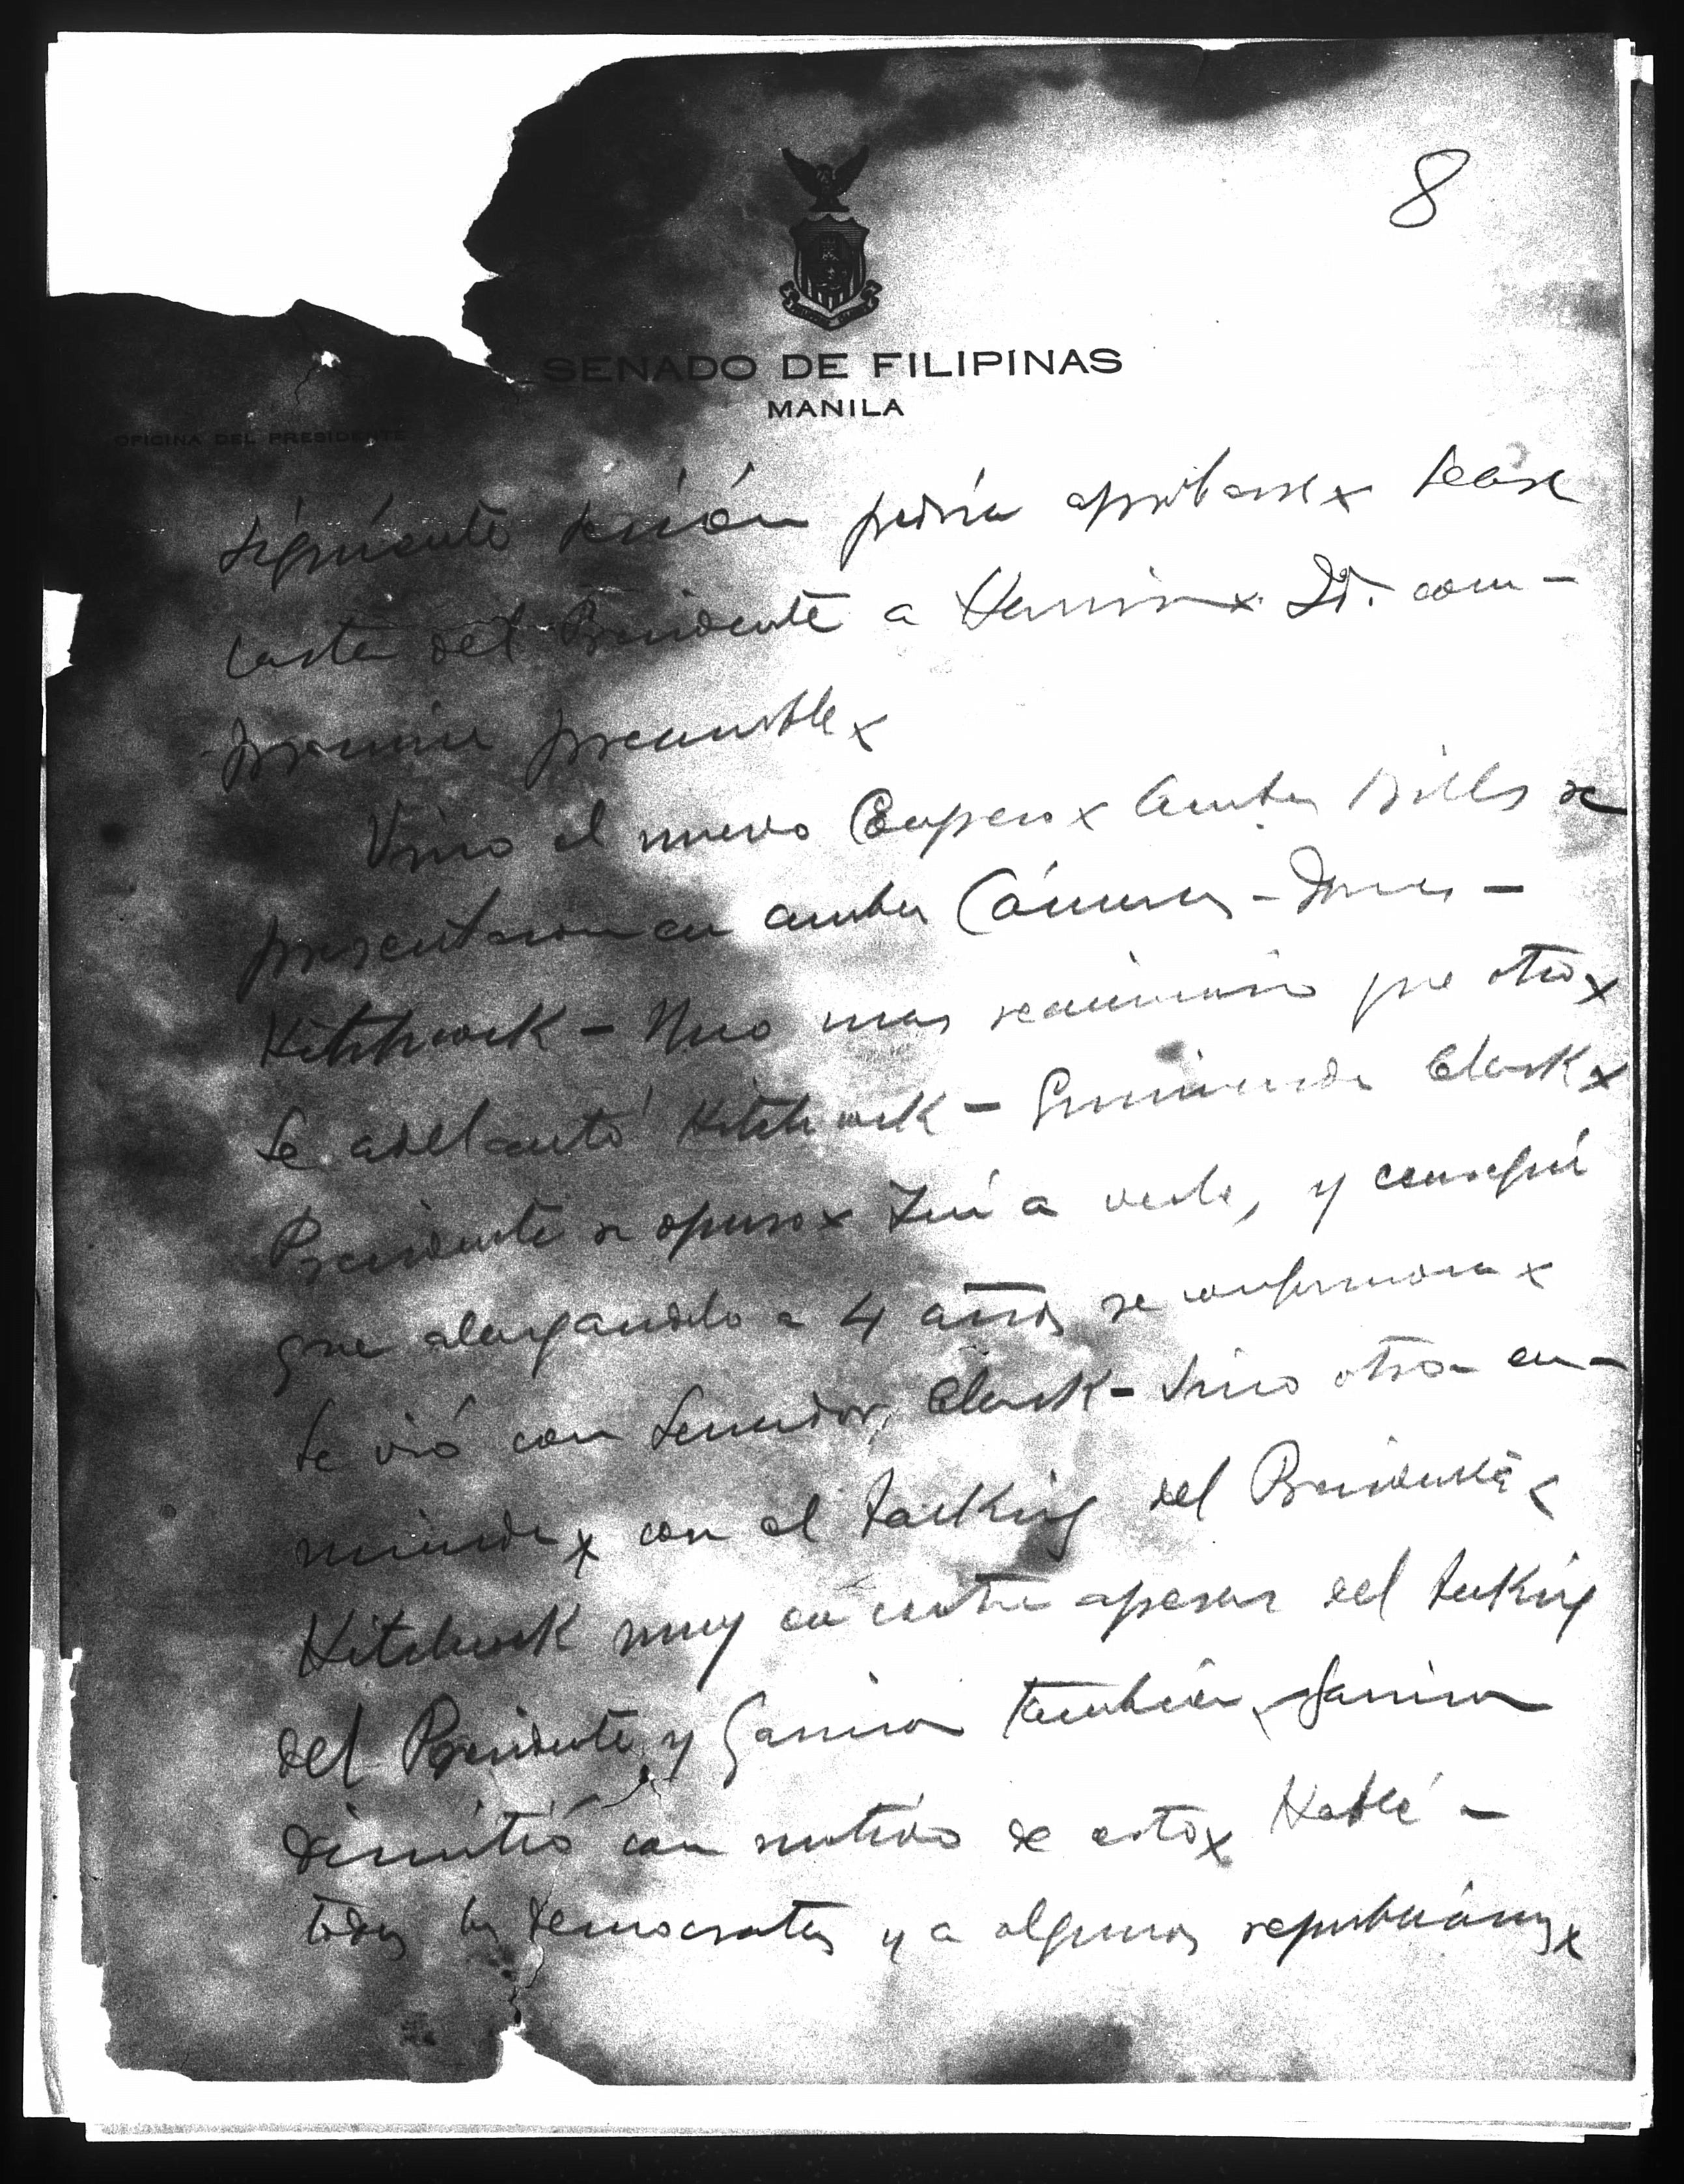 8
SENADO DE FILIPINAS
MANILA
OFICINA DEL PRESIDENTE
siguiente sesión podría aprobarse x Lease
carta del Presidente a Harrison x Id. com-
promise preamble x
Vino el nuevo Congreso x Ambos Bills se
presentaron en ambas Cámaras - Jones -
Hitchcock - Uno mas que otro x
Se adelantó Hitchcock - Enmienda Clark x
Presidente se opuso x Fuí a verle, y conseguí
que alargandolo a 4 años se conformara x
Se vió con Senador Clark - Vino otra en-
mienda x con el backing del Presidente x
Hitchcock muy en contra apesar del backing
del Presidente y Garrison también x Garrison
dimitió con motivo de esto x Hablé -
todos los democratas y a algunos republicanos x